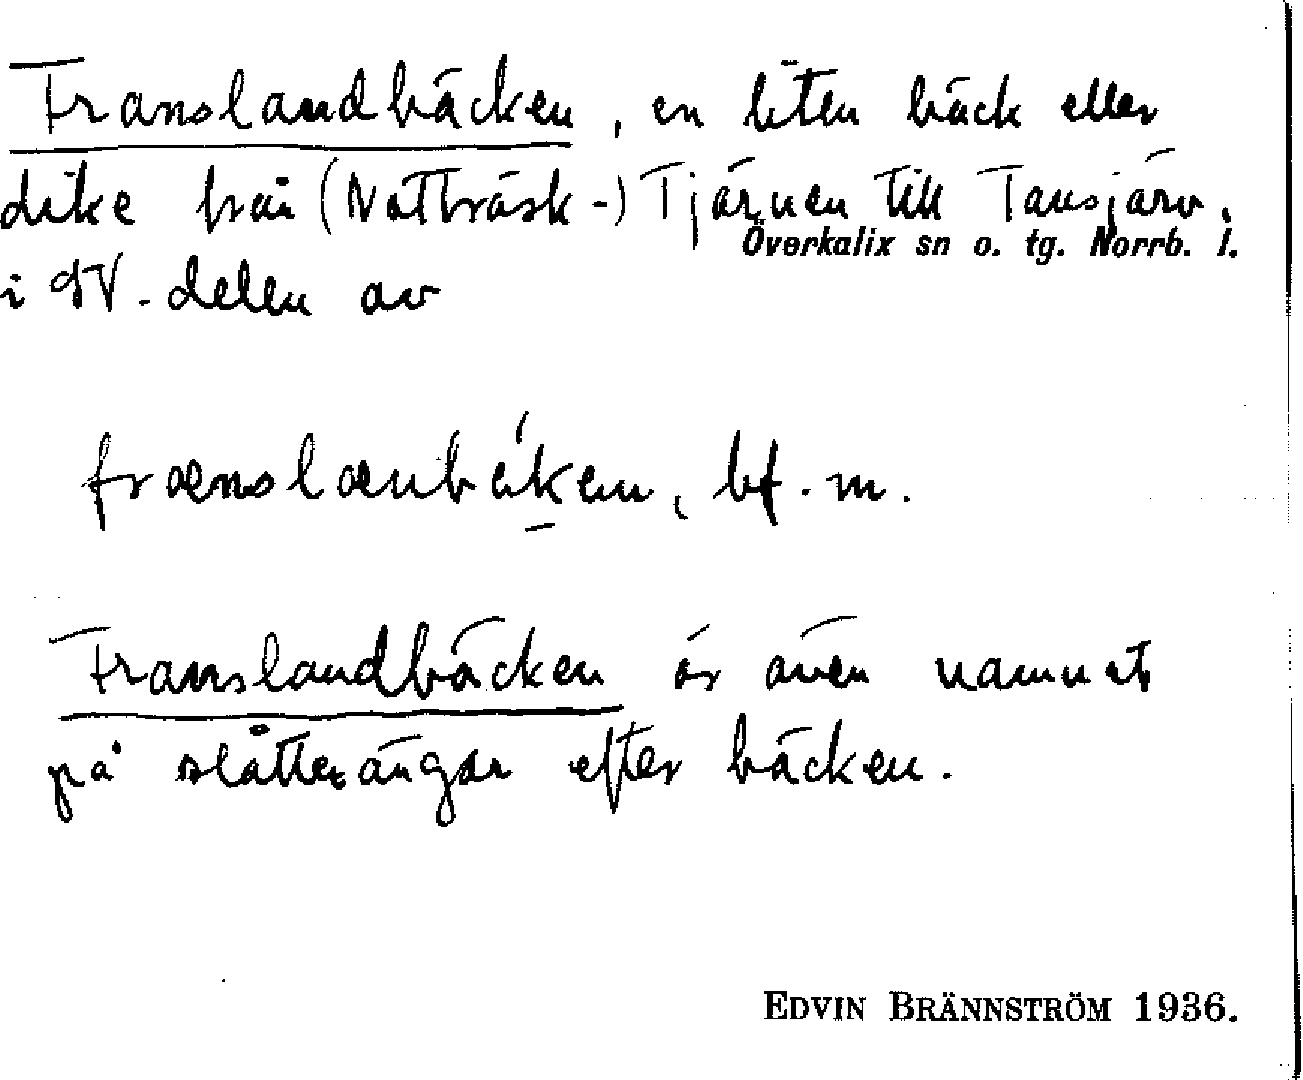 Franslandbäcken, en liten bäck eller
dike från (Notträsk-) Tjärnen till Tansjärv,
Överkalix sn o. tg. Norrb. l.
i NV-delen av
frænslænbækæn, bf. m.
Franslandbäcken är även namnet
på slåtterängar efter bäcken.
EDVIN BRÄNNSTRÖM 1936.